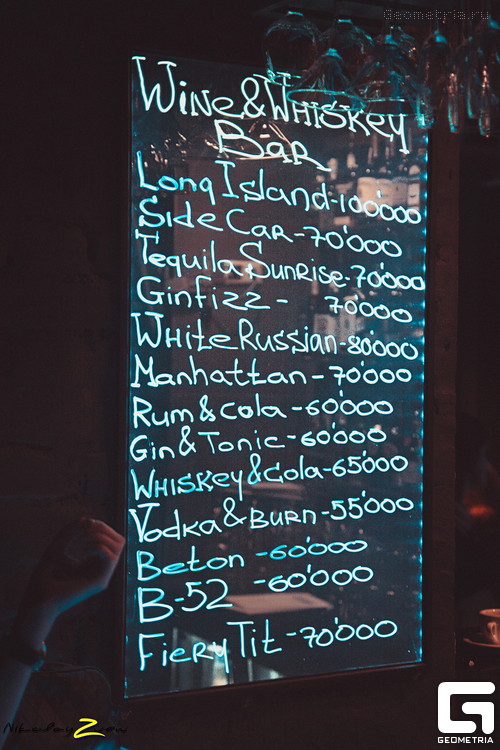 Geometria.ru
Wine & Whiskey
Bar
Long Island - 100'000
Side Car - 70'000
Tequila Sunrise - 70'000
Gin fizz - 70'000
White Russian - 80'000
Manhattan - 70'000
Rum & Cola - 60'000
Gin & Tonic - 60'000
Whiskey & Cola - 65'000
Vodka & Burn - 55'000
Beton - 60'000
B-52 - 60'000
Fiery Tit - 70'000
G
GEOMETRIA